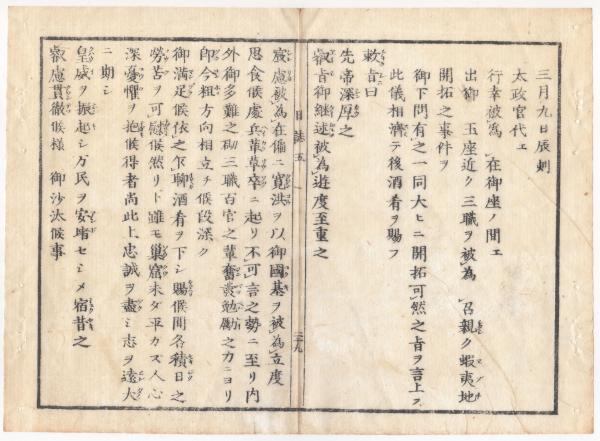 三月九日辰刻
太政官代エ
行幸被為 在御座ノ間エ
出御 玉座近ク三職ヲ被為 召親ク蝦夷地
開拓之事件ヲ
御下問有之一同大ヒニ開拓可然之旨ヲ言上ス
此儀相濟テ後酒肴ヲ賜フ
敕旨曰
先帝深厚之
叡旨御継述被為遊度至重之
日誌五
三十九
宸慮被為在偏ニ寛洪ヲ以御國基ヲ被為立度
思食候處兵革草卒ニ起リ不可言之勢ニ至リ内
外御多難之砌三職百官之輩奮發勉勵之力ニヨリ
即今粗方向相立チ候段深ク
御満足候依之乍聊酒肴ヲ下シ賜候間各積日之
勞苦ヲ可慰候然リト雖モ巣窟未タ平カス人心
深憂懼ヲ抱候得者尚此上忠誠ヲ盡シ志ヲ遠大
ニ期シ
皇威ヲ振起シ万民ヲ安堵セシメ宿昔之
叡慮貫徹候様 御沙汰候事